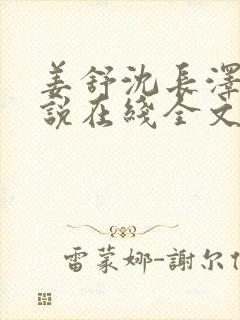 姜舒沈長澤
説在綫全文
雷蒙娜-謝尔